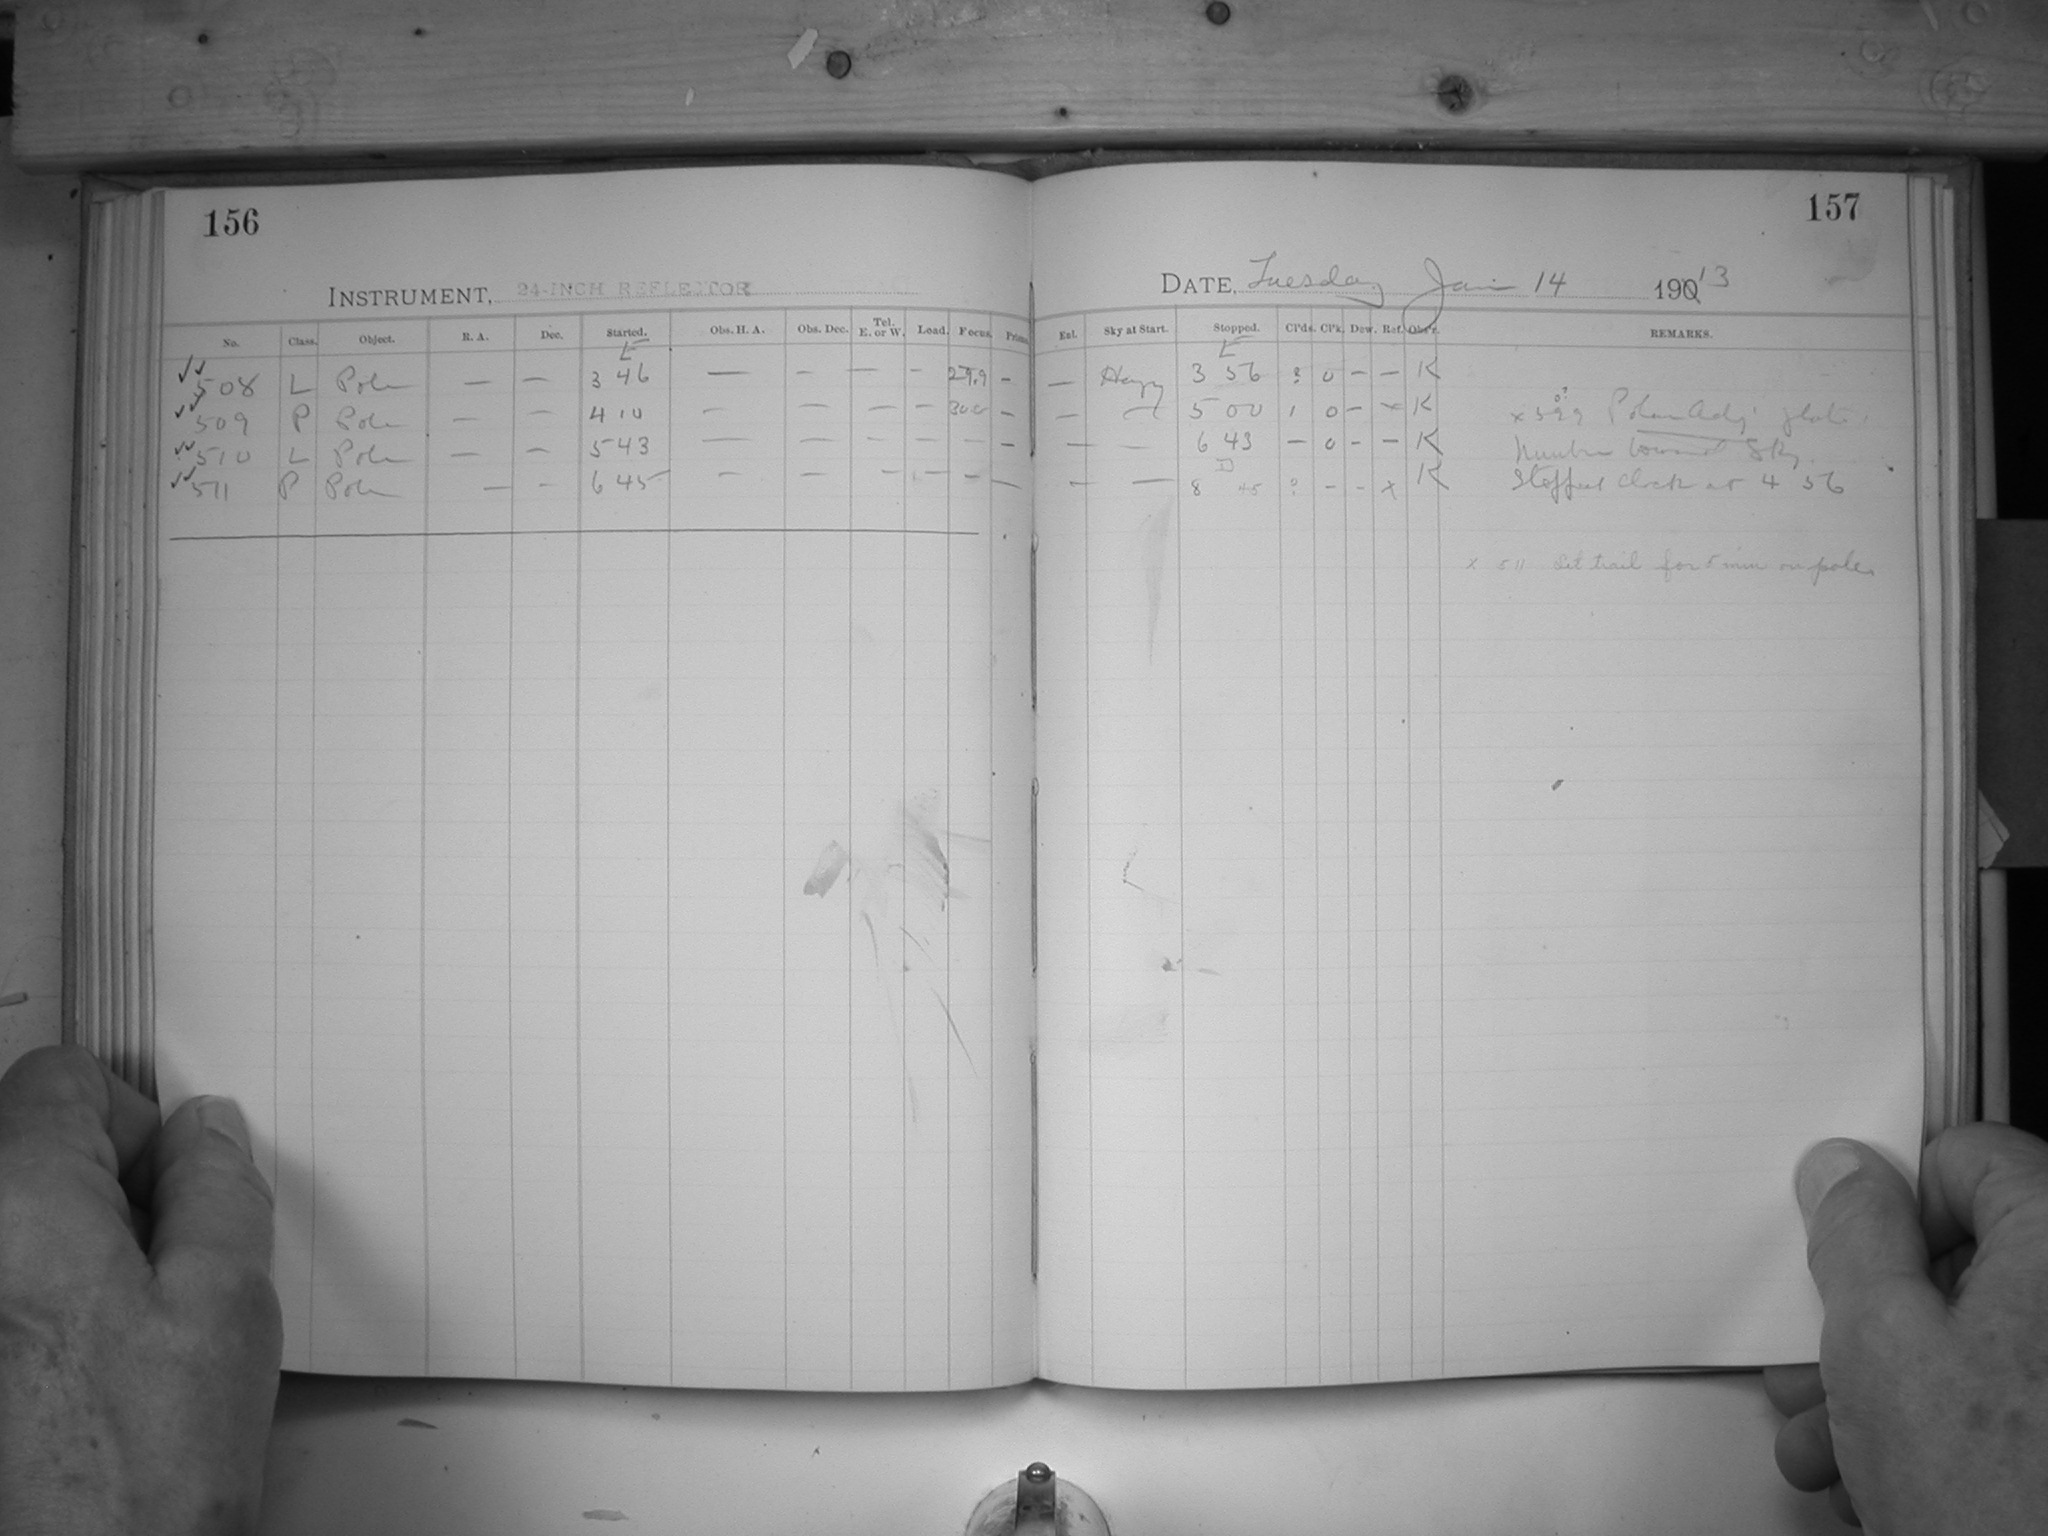 156
157
INSTRUMENT, 24-INCH REFLECTOR
DATE, Tuesday Jan 14 1913
No. Class. Object. R. A. Dec. Started. Obs. H. A. Obs. Dec. Tel. E. or W. Load. Focus. Prism. Ent. Sky at Start. Stopped. Cl'ds. Cl'k. Dew. Ref. Obs'r. REMARKS.
E E
508 L Pole — — 3 46 — — — - 29.9 - — Hazy 3 56 ? 0 - — K
509 P Pole — — 4 10 — — — - 30.0 - — — 5 00 1 0 - x K x 599 Polar Adj. plate
510 L Pole — — 5 43 — — — — — - — — 6 43 — 0 - - K Number toward Sky.
511 P Pole — - 6 45 - — - — - — — — 8 45 ? - - x K Stopped Clock at 4 56
x 511 Let trail for 5 min on pole